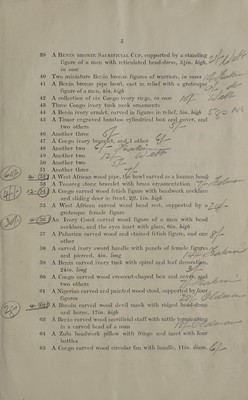 3
39 A Benin bronze Sacrificial Cup, supported by a standing
figure of a man with reticulated head-dress, 5¼in. high,
in case
40 Two miniature Benin bronze figures of warriors, in cases
41 A Benin bronze pipe bowl, cast in relief with a grotesque
figure of a man, 4in. high
42 A collection of six Congo ivory rings, in case
43 Three Congo ivory tusk neck ornaments
44 A Benin ivory armlet, carved in figures in relief, 5in. high
45 A Timor engraved bamboo cylindrical box and cover, and
two others
46 Another three
47 A Congo ivory bracelet, and 1 other
48 Another two
49 Another two
50 Another two
51 Another three
52 A West African wood pipe, the bowl carved as a human head
53 A Tucaong stone bracelet with brass ornamentation
54 A Congo carved wood fetish figure with beadwork necklace
and sliding door in front, 2ft. 1in. high
55 A West African carved wood head rest, supported by a
grotesque female figure
56 An Ivory Coast carved wood figure of a man with bead
necklace, and the eyes inset with glass, 8in. high
57 A Pahutin carved wood and stained fetish figure, and one
other
58 A carved ivory sword handle with panels of female figures
and pierced, 4in. long
59 A Benin carved ivory tusk with spiral and leaf decoration,
24in. long
60 A Congo carved wood crescent-shaped box and cover, and
two others
61 A Nigerian carved and painted wood stool, supported by four
figures
62 A Bundu carved wood devil mask with ridged head-dress
and horns, 17in. high
63 A Benin carved wood sacrificial staff with rattle terminating
in a carved head of a man
64 A Zulu beadwork pillow with fringe and inset with four
bottles
65 A Congo carved wood circular fan with handle, 11in. diam.